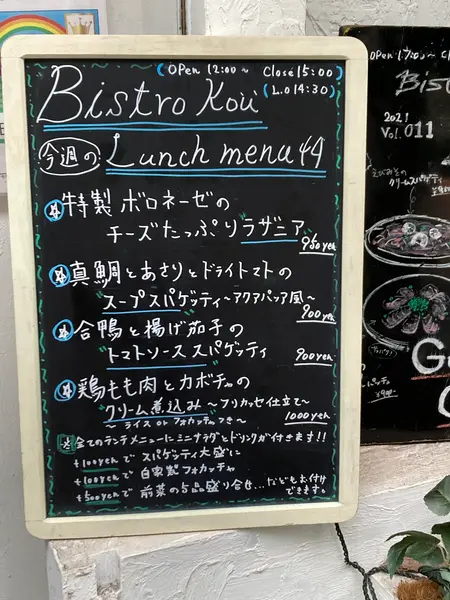 (OPen 12:00~ Close 15:00)
(L.o 14:30)
Bistro Koù
今週の Lunch menu 44
特製 ボロネーゼの
チーズたっぷりラザニア
950yen
真鯛とあさりとドライトマトの
スープスパゲッティ ~アクアパッア風~
900yen
合鴨と揚げ茄子の
"トマトソーススパゲッティ
900yen
鶏もも肉とカボチャの
"クリーム煮込み" ~フリカッセ仕立て~
ライス or フォカッチャつき~
1000yen
全てのランチメニューにミニサラダとドリンクが付きます!!
+100yenで スパゲッティ大盛に
+100yenで 自家製フォカッチャ
+500yenで 前菜の5品盛り合せ...などもお付け
できます。
OPen 17:00~
Bis
2021
Vol. 011
クリームスパゲティ